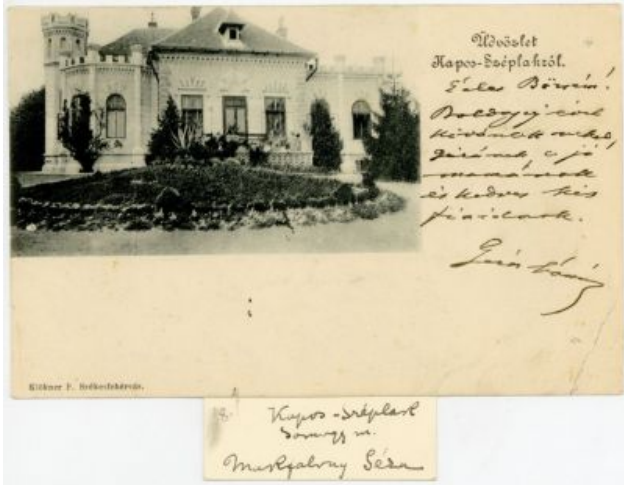 Üdvözlet
Kapos-Széplakról.
Édes Börcsi!
Boldog új évet
kívánok neked,
Gézának, a jó
mamának
és kedves kis
fiaidnak.
Klökner P. Székesfehérvár.
Kapos-Széplak
Somogy m.
Géza